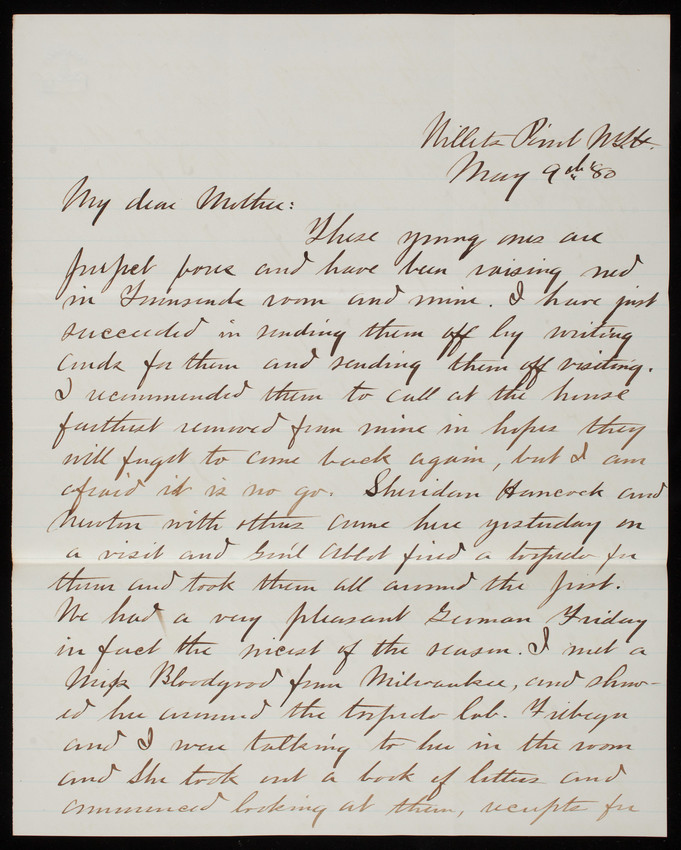 Willets Point N.Y.H.
May 9th 80
My dear Mother:
These young ones are
perfect pones and have been raising ned
in Townsends room and mine. I have just
succeeded in sending them off by writing
cards for them and sending them off visiting.
I recommended them to call at the house
farthest removed from mine in hopes they
will forget to come back again, but I am
afraid it is no go. Sheridan Hancock and
Newton with others came here yesterday on
a visit and Gen'l Abbot fired a torpedo for
them and took them all around the post.
We had a very pleasant German Friday
in fact the nicest of the season. I met a
Miss Bloodgood from Milwaukee, and show-
ed her around the torpedo lab.
and I were talking to her in the room
and she took out a book of letters and
commenced looking at them, receipts for